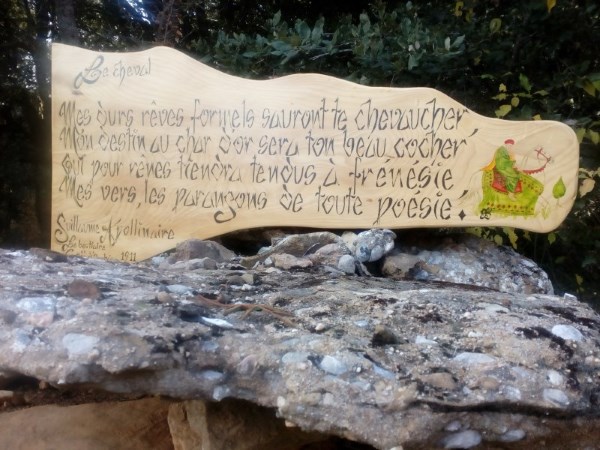 Le cheval
Mes durs rêves formels sauront te chevaucher,
Mon destin au char d'or sera ton beau cocher
Qui pour rênes tiendra tendus à frénésie
Mes vers, les parangons de toute poésie.
Guillaume Apollinaire
1911